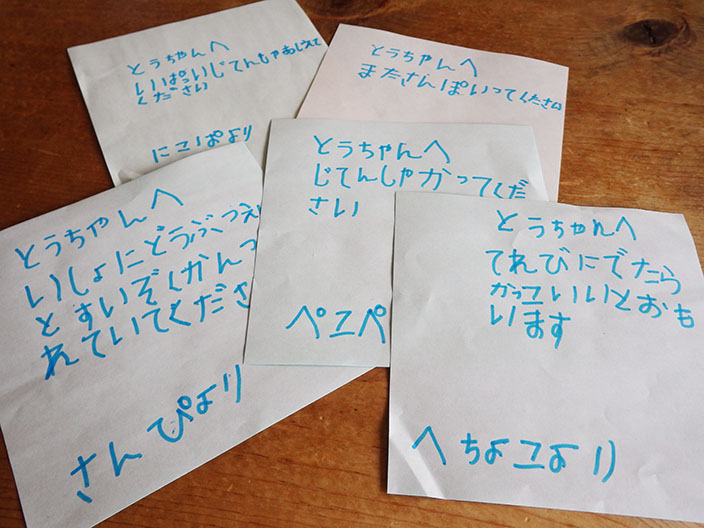 とうちゃんへ
いぱっいじてんしゃおしえて
ください
にこぱより
とうちゃんへ
またさんぽいってください
とうちゃんへ
じてんしゃかってくだ
さい
ペコペ
とうちゃんへ
いしょにどうぶつえ
とすいぞくかんつ
れていてくださ
さんぴより
とうちゃんへ
てれびにでたら
かっこいいとおも
います
へちょこより